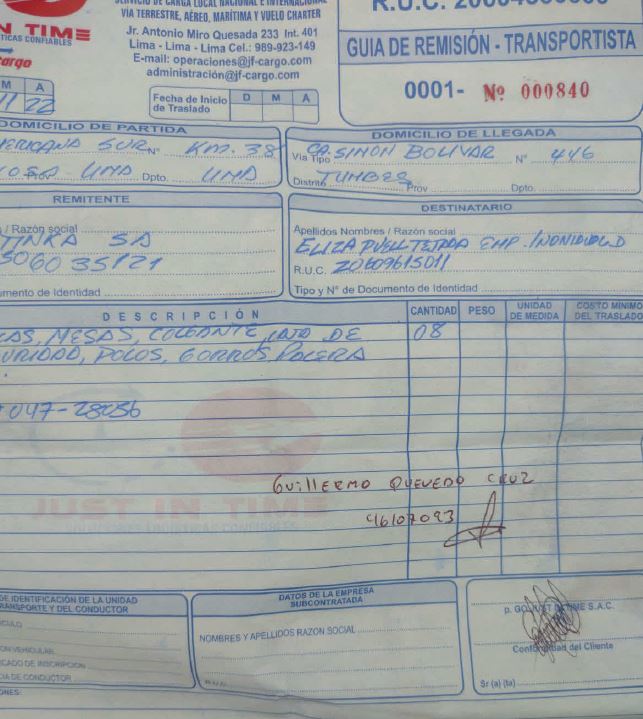 SERVICIO DE CARGA LOCAL NACIONAL E INTERNACIONAL
VÍA TERRESTRE, AÉREO, MARÍTIMA Y VUELO CHARTER
IN TIME
TICAS CONFIABLES
Jr. Antonio Miro Quesada 233 Int. 401
Lima - Lima - Lima Cel.: 989-923-149
E-mail: operaciones@jf-cargo.com
administración@jf-cargo.com
argo
R.U.C.
GUIA DE REMISIÓN - TRANSPORTISTA
0001- Nº 000840
M A
11 22
Fecha de Inicio de Traslado D M A
DOMICILIO DE PARTIDA
ERICANA SUR Nº KM. 38
Prov LIMA Dpto. LIMA
DOMICILIO DE LLEGADA
Via Tipo CA. SIMON BOLIVAR Nº 446
Distrito TUMBES Prov Dpto.
REMITENTE
/ Razón social
TINKA SA
506035121
umento de Identidad
DESTINATARIO
Apellidos Nombres / Razón social
ELIZA PUELL TEJADA EMP. INDIVIDUAL
R.U.C. 20609615011
Tipo y Nº de Documento de Identidad
DESCRIPCIÓN CANTIDAD PESO UNIDAD DE MEDIDA COSTO MINIMO DEL TRASLADO
AS, MESAS, COLGANTE, DE 08
URIDAD, POLOS, GORROS, POLERA
047-28086
JUST IN TIME
GUILLERMO QUEVEDO CRUZ
46107093
DE IDENTIFICACIÓN DE LA UNIDAD
TRANSPORTE Y DEL CONDUCTOR
ICULO
ON VEHICULAR
ICADO DE INSCRIPCION
IA DE CONDUCTOR
ONES:
DATOS DE LA EMPRESA
SUBCONTRATADA
NOMBRES Y APELLIDOS RAZON SOCIAL
R.U.C.
p. GO JUST IN TIME S.A.C.
Conformidad del Cliente
Sr (a) (ta)